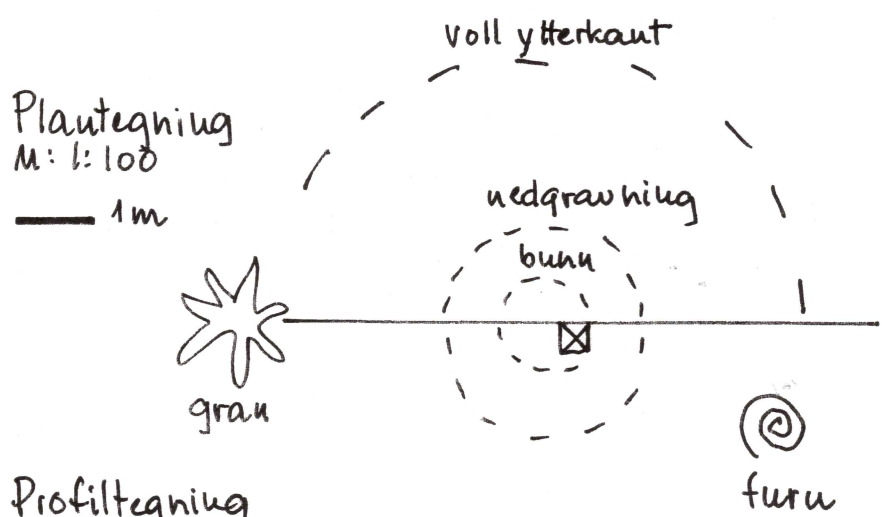 voll ytterkant
Plantegning
M: 1:100
1m
nedgravning
bunn
gran
furu
Profiltegning